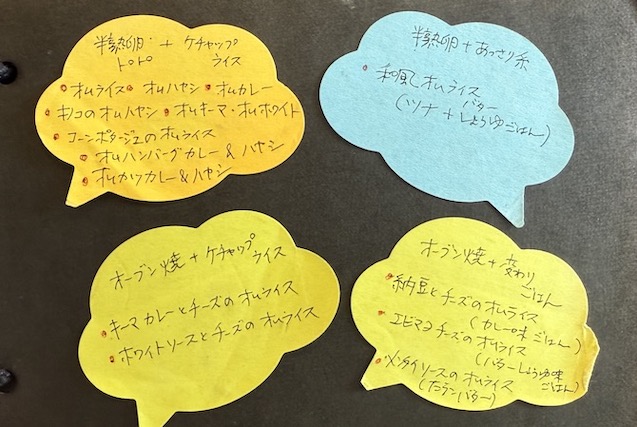 半熟卵 + ケチャップ
トロトロ ライス
• オムライス • オムハヤシ • オムカレー
• キノコのオムハヤシ • オムキーマ・オムホワイト
• コーンポタージュのオムライス
• オムハンバーグカレー & ハヤシ
• オムカツカレー & ハヤシ
半熟卵 + あっさり系
• 和風オムライス
バター
(ツナ + しょうゆごはん)
オーブン焼 + ケチャップ
ライス
• キーマカレーとチーズのオムライス
• ホワイトソースとチーズのオムライス
オーブン焼 + 変わり
ごはん
• 納豆とチーズのオムライス
(カレー味ごはん)
• エビマヨチーズのオムライス
(バターしょうゆ味
ごはん)
• メンタイソースのオムライス
バター)